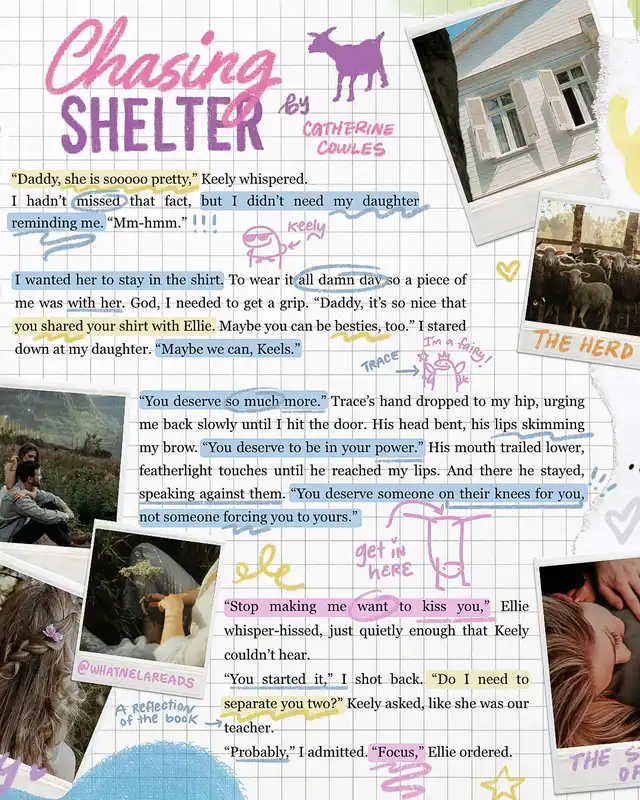 Chasing
SHELTER
by
CATHERINE
COWLES
“Daddy, she is sooooo pretty,” Keely whispered.
I hadn’t missed that fact, but I didn’t need my daughter
reminding me. “Mm-hmm.” !!!
Keely
I wanted her to stay in the shirt. To wear it all damn day so a piece of
me was with her. God, I needed to get a grip. “Daddy, it’s so nice that
you shared your shirt with Ellie. Maybe you can be besties, too.” I stared
down at my daughter. “Maybe we can, Keels.”
THE HERD
I'm a fairy!
TRACE
“You deserve so much more.” Trace’s hand dropped to my hip, urging
me back slowly until I hit the door. His head bent, his lips skimming
my brow. “You deserve to be in your power.” His mouth trailed lower,
featherlight touches until he reached my lips. And there he stayed,
speaking against them. “You deserve someone on their knees for you,
not someone forcing you to yours.”
get in
HERE
“Stop making me want to kiss you,” Ellie
whisper-hissed, just quietly enough that Keely
couldn’t hear.
“You started it,” I shot back. “Do I need to
separate you two?” Keely asked, like she was our
teacher.
“Probably,” I admitted. “Focus,” Ellie ordered.
@WHATNELAREADS
A REFLECTION
OF THE BOOK
THE
OF